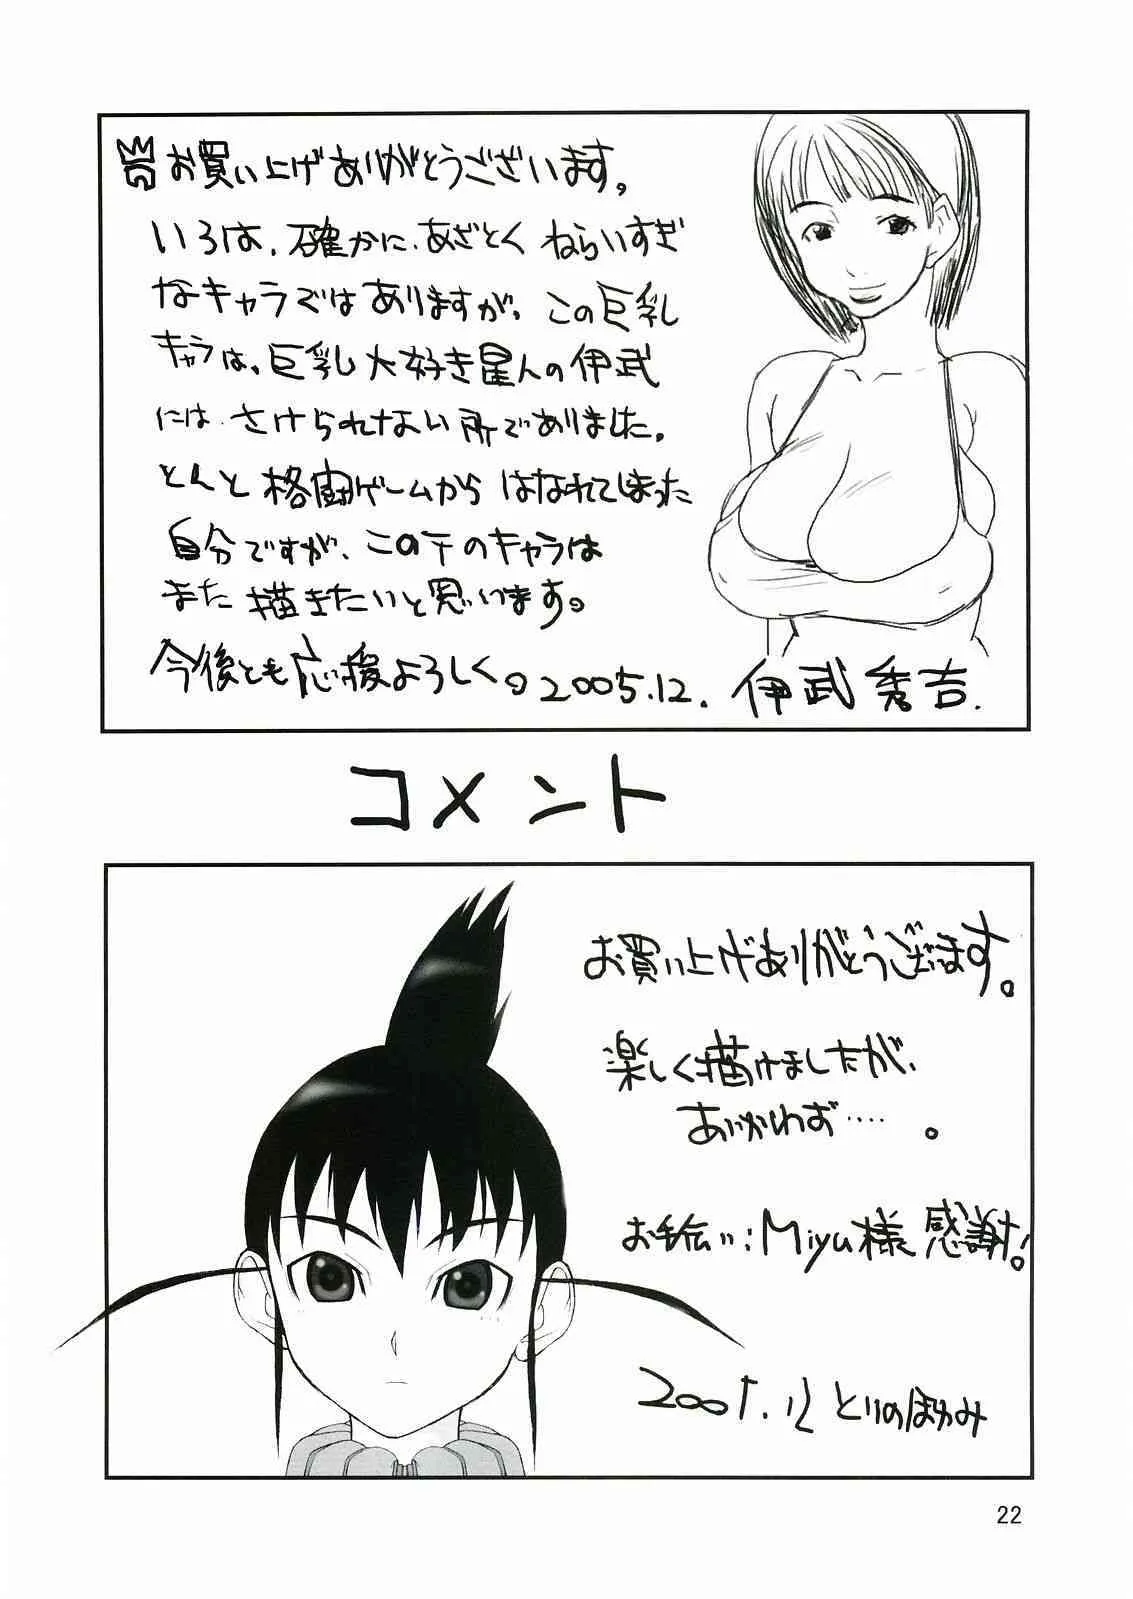 お買い上げありがとうございます。
いろは、確かに、あざとくねらいすぎ
なキャラではありますが、この巨乳
キャラは、巨乳大好き星人の伊武
には、さけられない所でありました。
とんと格闘ゲームからはなれてしまった
自分ですが、この手のキャラは
また描きたいと思います。
今後とも応援よろしく。2005.12. 伊武秀吉.
コメント
お買い上げありがとうございます。
楽しく描けましたが、
あいかわらず‥‥。
お手伝い:Miyu様 感謝!
2005.12 とりのほかみ
22